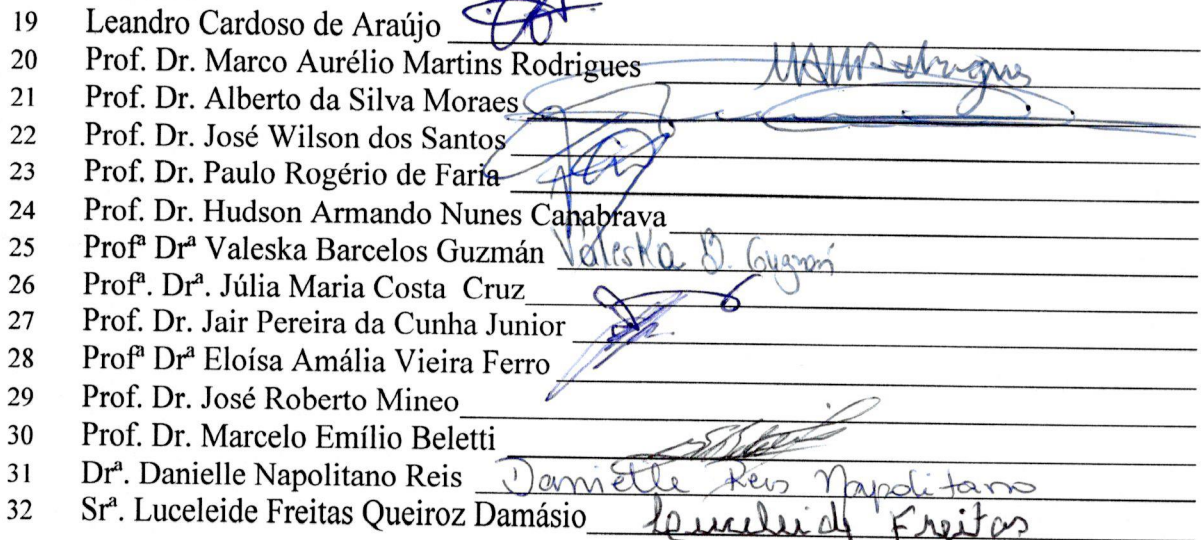 19 Leandro Cardoso de Araújo
20 Prof. Dr. Marco Aurélio Martins Rodrigues MAMRodrigues
21 Prof. Dr. Alberto da Silva Moraes
22 Prof. Dr. José Wilson dos Santos
23 Prof. Dr. Paulo Rogério de Faria
24 Prof. Dr. Hudson Armando Nunes Canabrava
25 Profª Drª Valeska Barcelos Guzmán Valeska B. Guzmán
26 Profª. Drª. Júlia Maria Costa Cruz
27 Prof. Dr. Jair Pereira da Cunha Junior
28 Profª Drª Eloísa Amália Vieira Ferro
29 Prof. Dr. José Roberto Mineo
30 Prof. Dr. Marcelo Emílio Beletti
31 Drª. Danielle Napolitano Reis Danielle Reis Napolitano
32 Srª. Luceleide Freitas Queiroz Damásio Luceleide Freitas